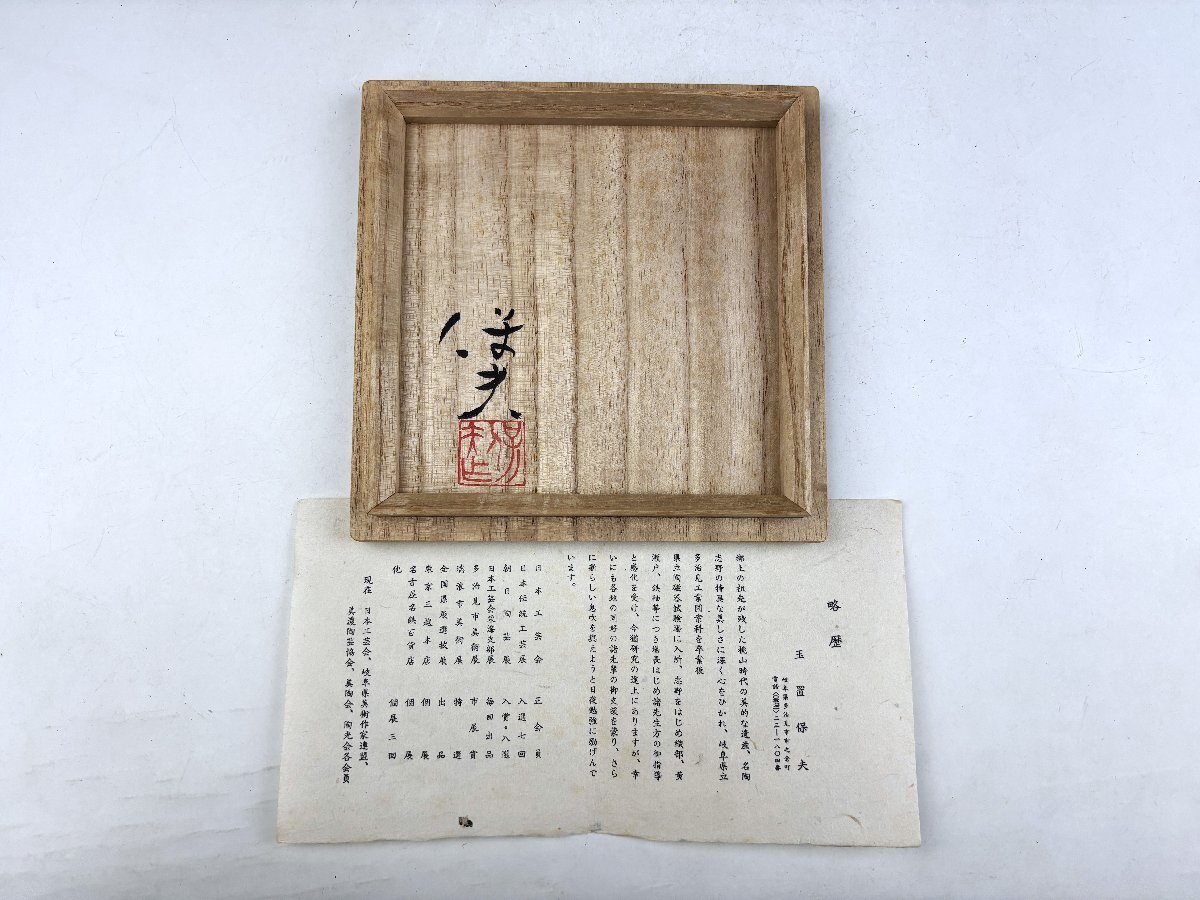 保夫
略歴
玉置保夫
岐阜県多治見市市之倉町
電話(〇五七二)二二―一八〇四番
郷土の祖先が残した桃山時代の美的な遺産、名陶
志野の特異な美しさに深く心をひかれ、岐阜県立
多治見工業図案科を卒業後
県立陶磁器試験場に入所、志野をはじめ織部、黄
瀬戸、鉄釉等につき場長はじめ諸先生方の御指導
と感化を受け、今猶研究の途上にありますが、幸
いにも各地の同好の諸先輩の御支援を蒙り、さら
に新らしい息吹を與えようと日夜勉強に励げんで
います。
日本工芸会 正会員
日本伝統工芸展 入選七回
朝日陶芸展 入賞・入選
日本工芸会東海支部展 毎回出品
多治見市美術展 市展賞
瑞浪市美術展 特選
全国県展選抜展 出品
東京三越本店 個展
名古屋名鉄百貨店 個展
他 個展三回
現在 日本工芸会、岐阜県美術作家連盟、
美濃陶芸協会、美陶会、陶光会各会員